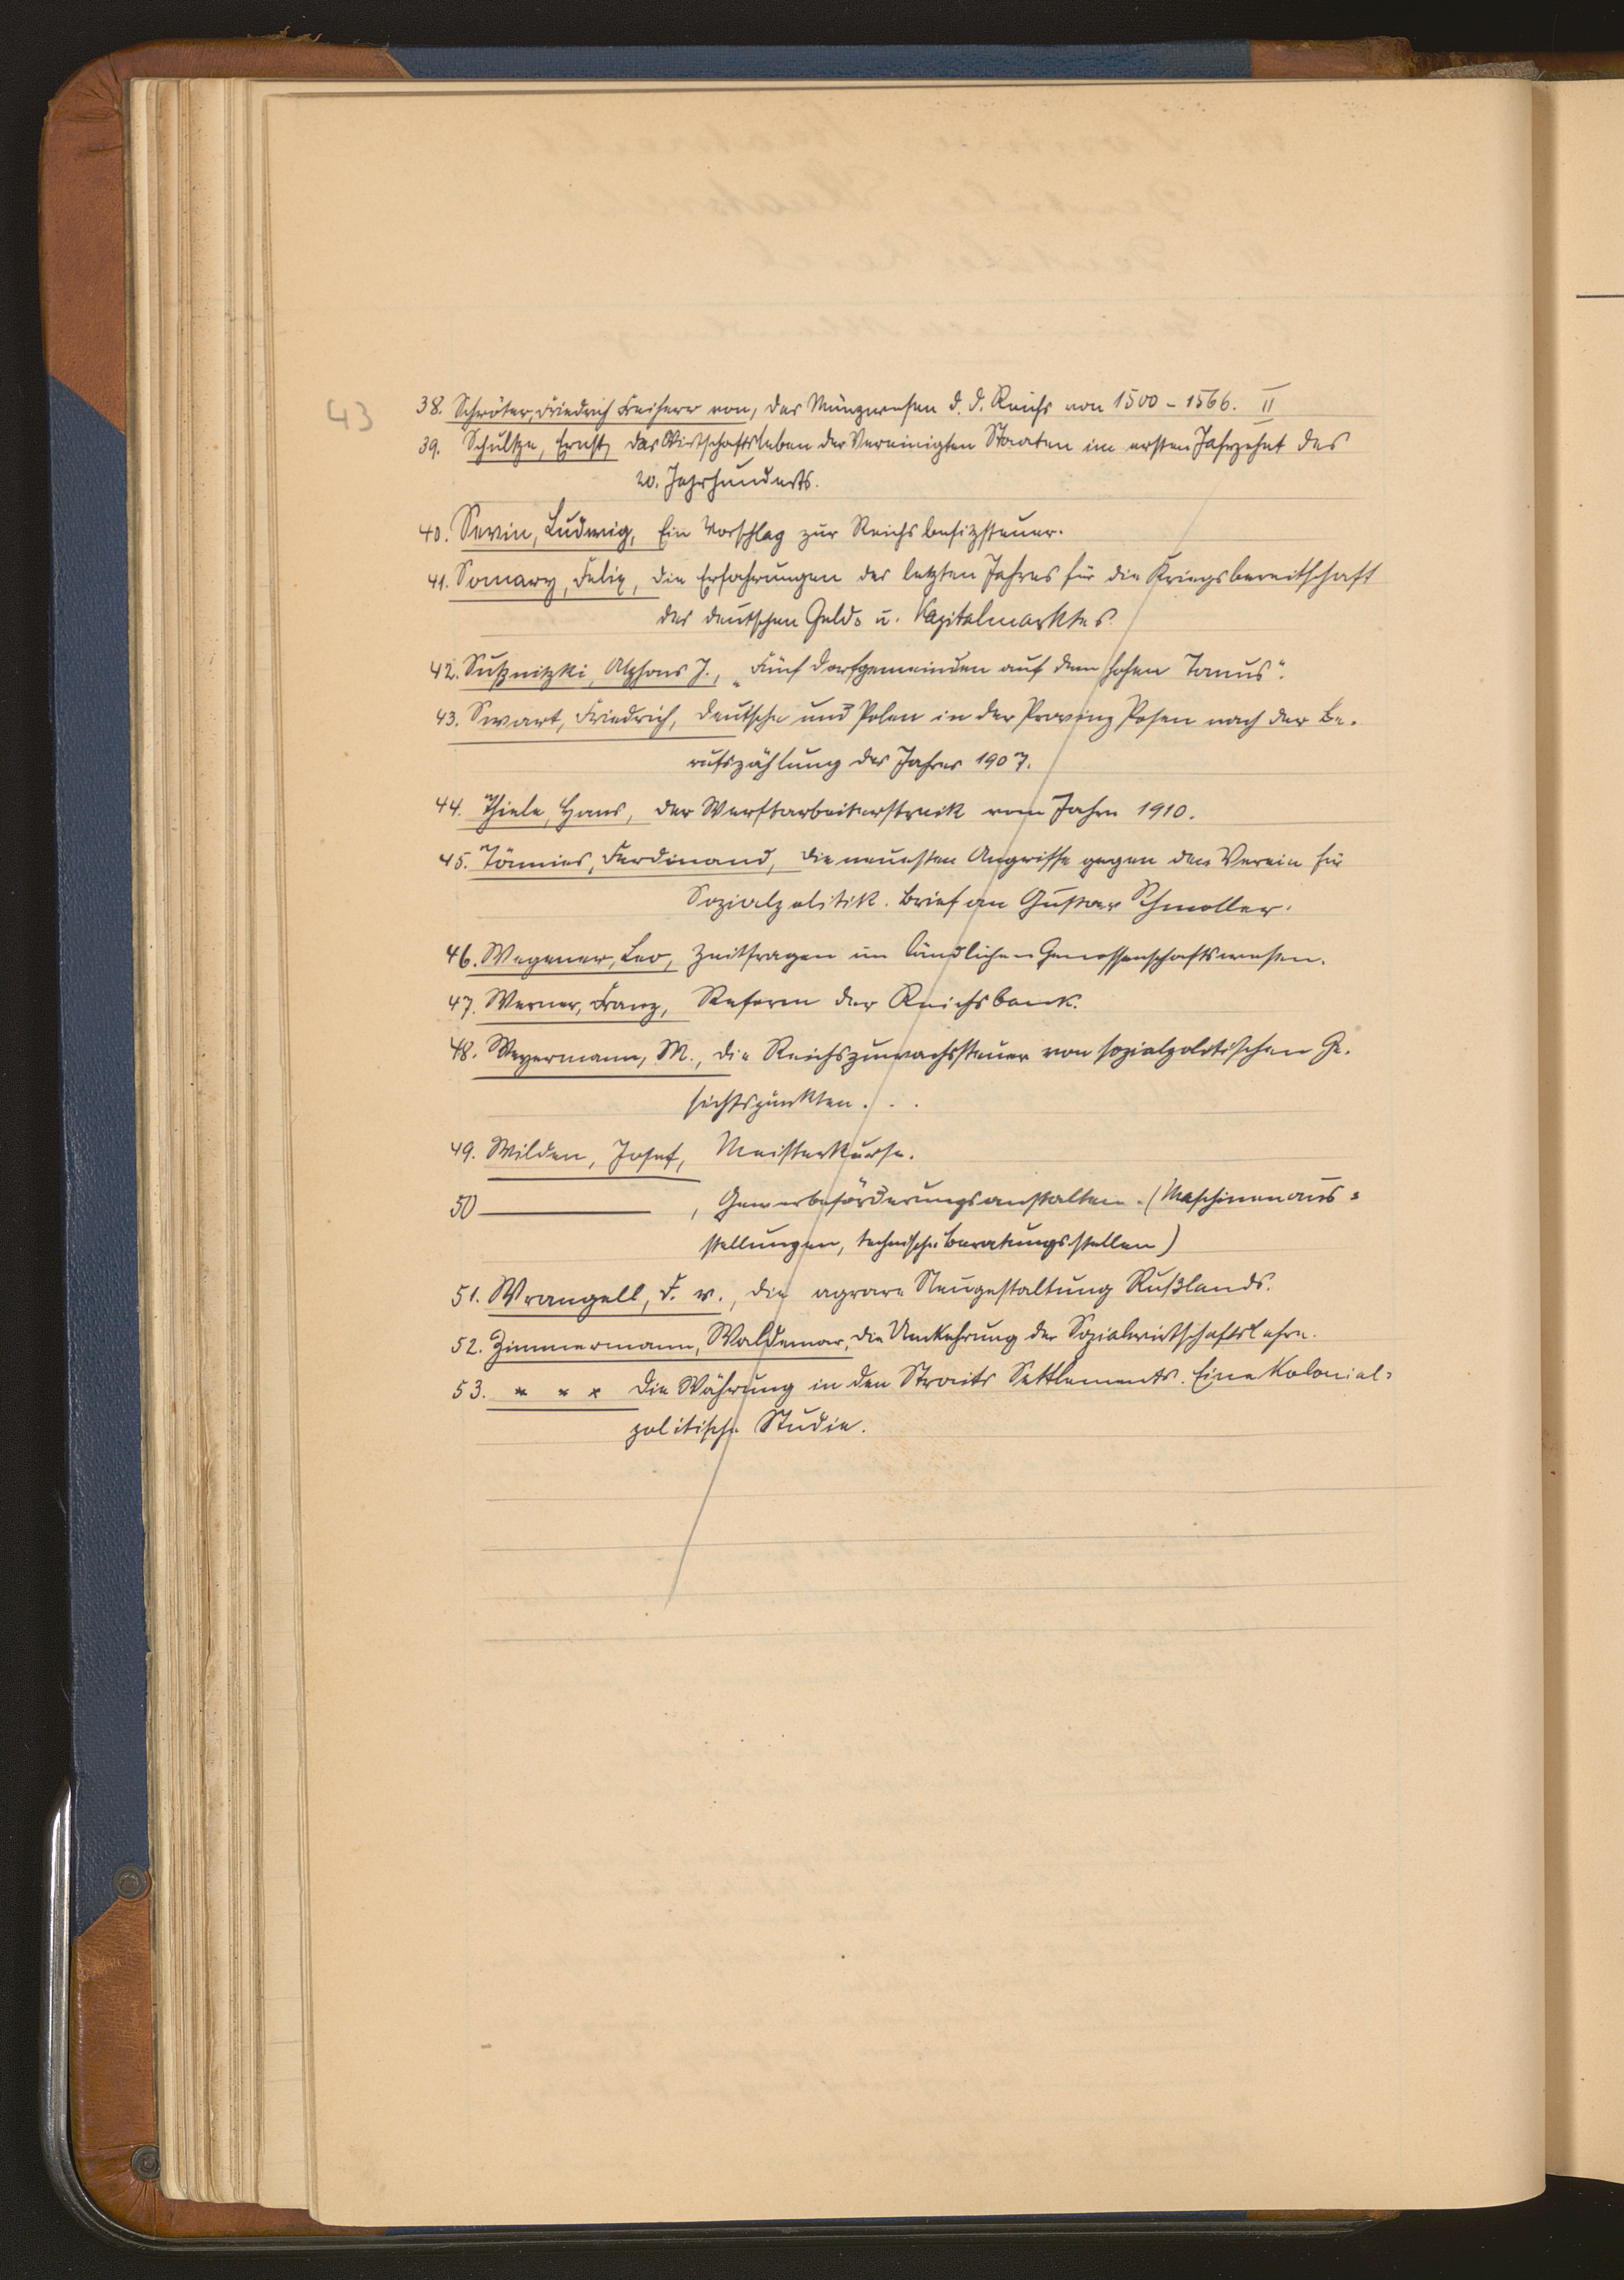 43
38. Schröter, Friedrich Freiherr von, das Münzwesen d. d. Reichs von 1500 - 1566. II
39. Schultze, Ernst, das Wirtschaftsleben der Vereinigten Staaten im ersten Jahrzehnt des
20. Jahrhunderts.
40. Sevin, Ludwig, Ein Vorschlag zur Reichsbesitzsteuer.
41. Somary, Felix, die Erfahrungen des letzten Jahres für die Kriegsbereitschaft
des deutschen Geld- u. Kapitalmarktes.
42. Sußnitzki, Alphons J., „Fünf Dorfgemeinden auf dem hohen Tanus".
43. Swart, Friedrich, Deutsche und Polen in der Provinz Posen nach der Be-
rufszählung des Jahres 1907.
44. Thiele, Hans, der Werftarbeiterstreik vom Jahre 1910.
45. Tönnies, Ferdinand, die neuesten Angriffe gegen den Verein für
Sozialpolitik. Brief an Gustav Schmoller.
46. Wegener, Leo, Zeitfragen im ländlichen Genossenschaftswesen.
47. Werner, Franz, Reform der Reichsbank.
48. Weyermann, M., die Reichszuwachssteuer von sozialpolitischen Ge-
sichtspunkten. . .
49. Wilden, Josef, Meisterkurse.
50 ———, Gewerbeförderungsanstalten. (Maschinenaus=
stellungen, technische Beratungsstellen)
51. Wrangell, F. v., die agrare Neugestaltung Rußlands.
52. Zimmermann, Waldemar, die Umkehrung der Sozialwirtschaftslehre.
53. * * * die Währung in den Straits Settlements. Eine Kolonial=
politische Studie.